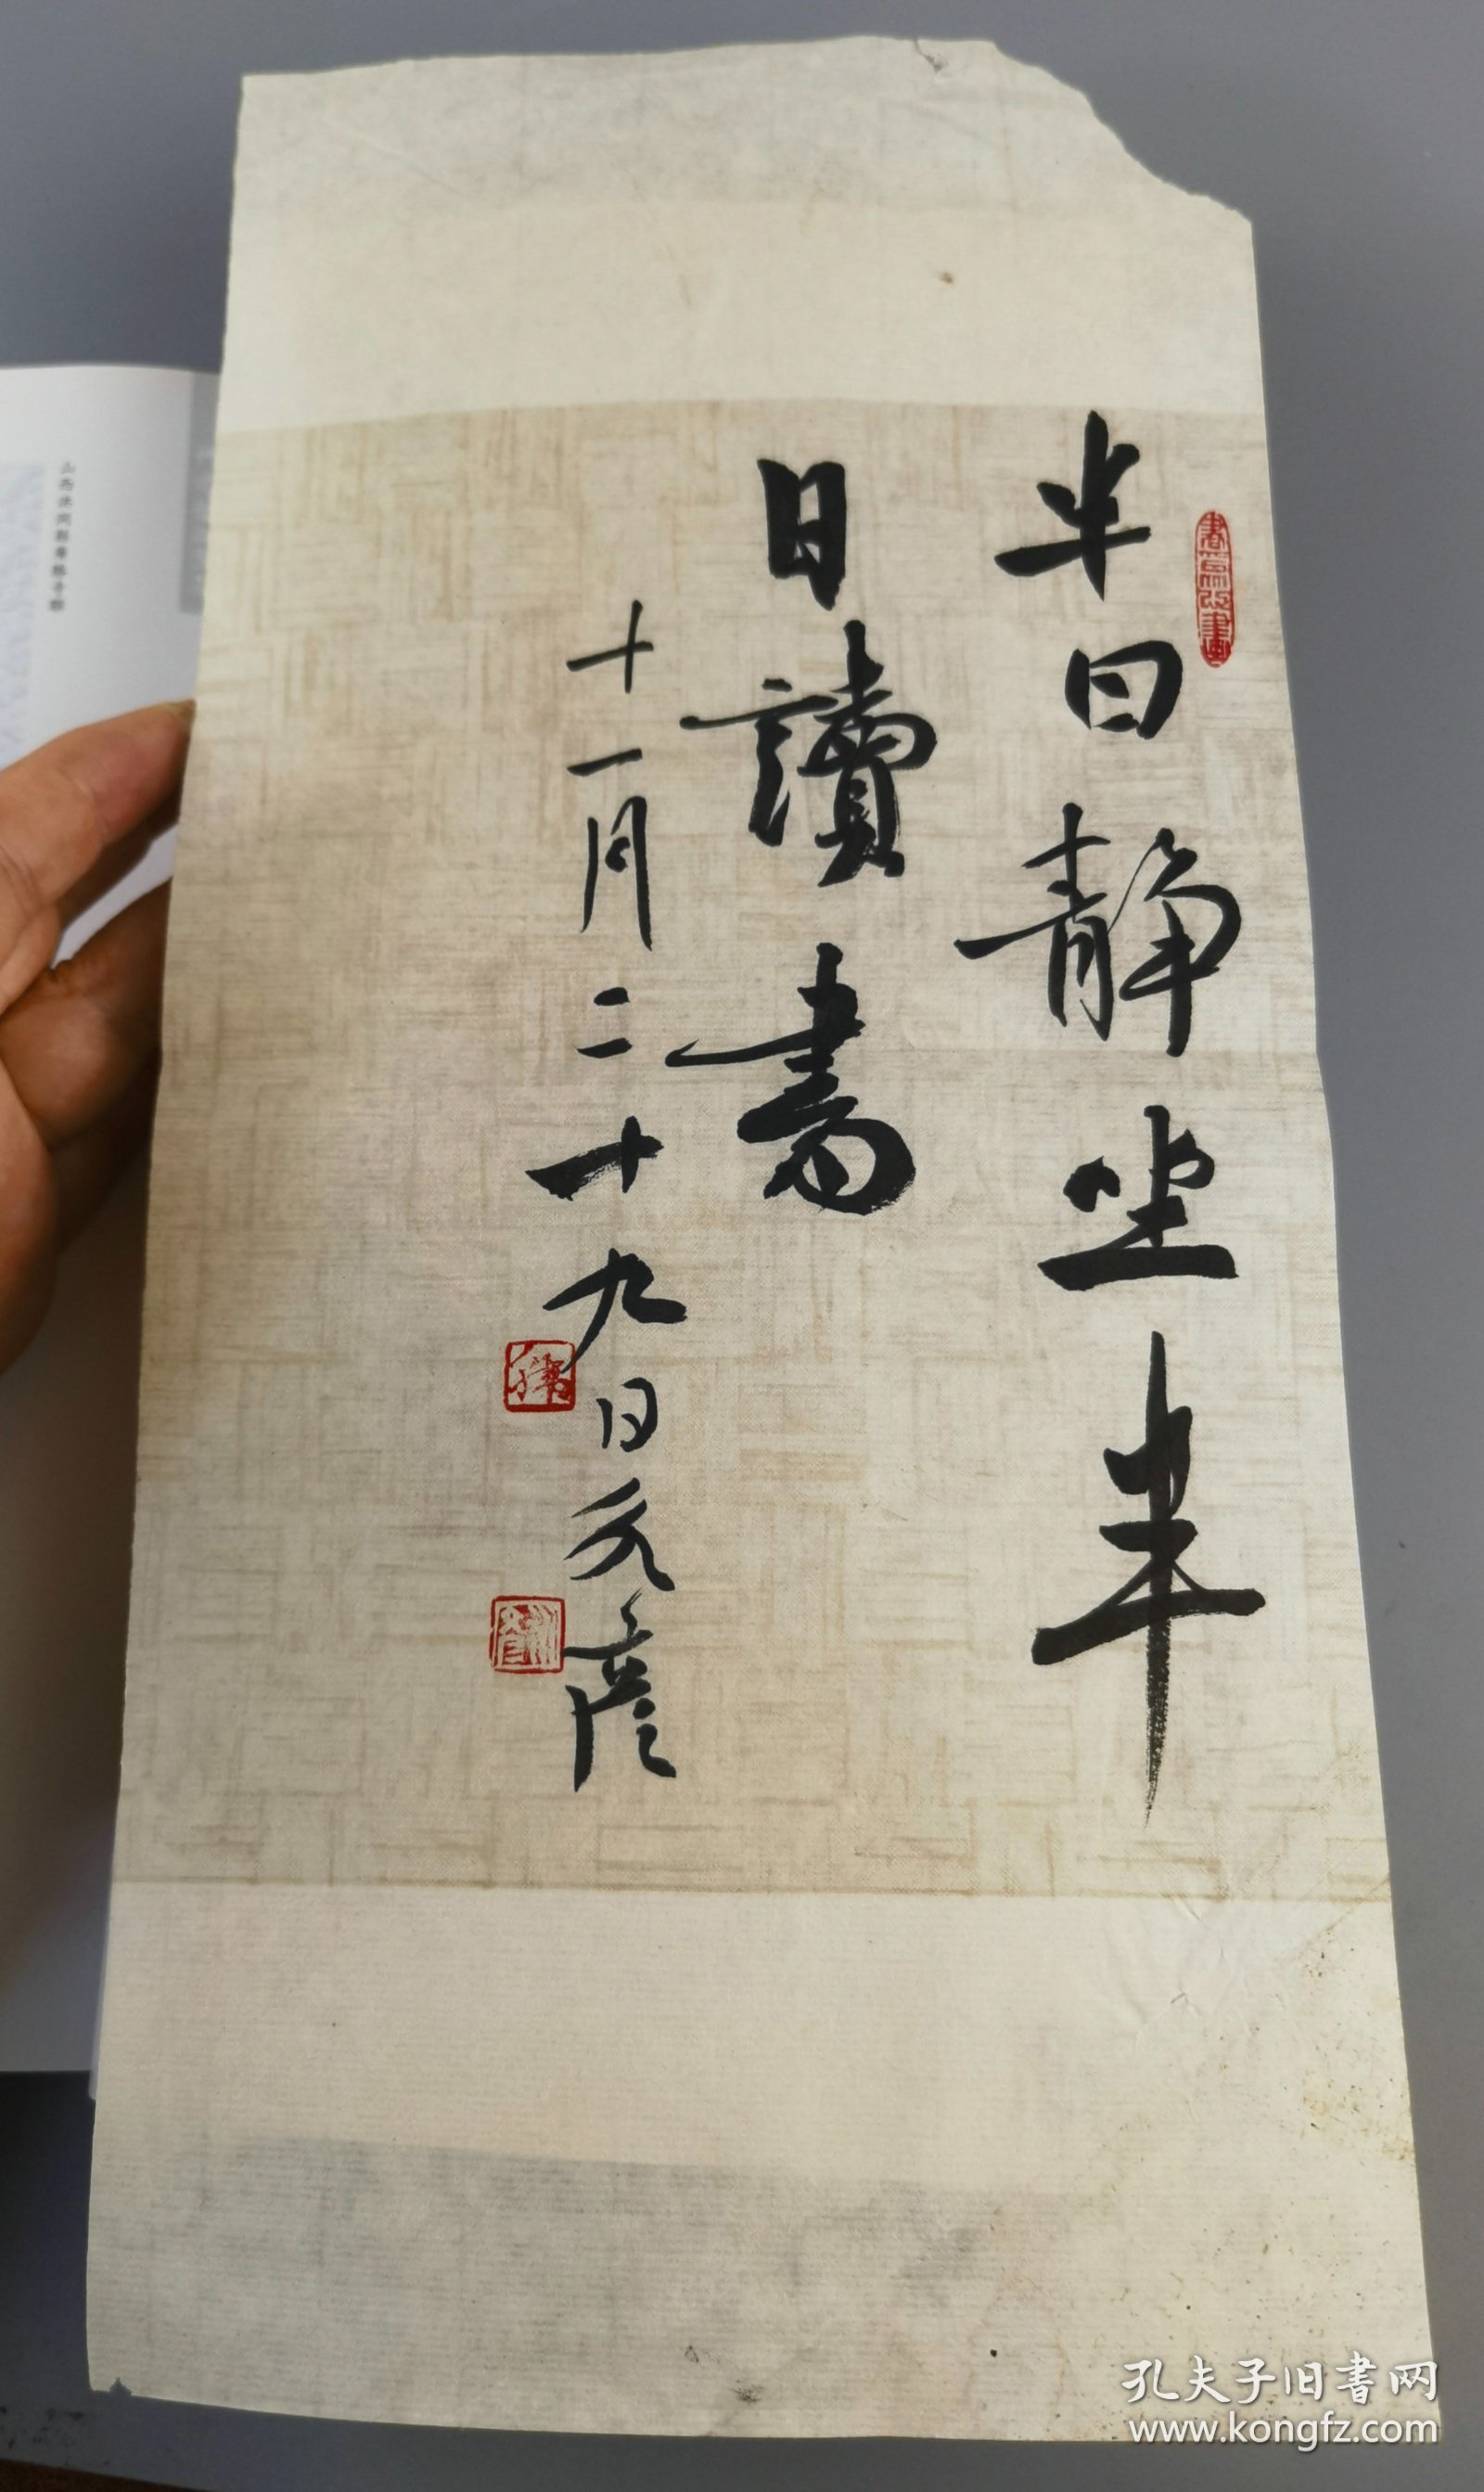 半日静坐半
日讀書
十一月二十九日元彦
書爲心畫
孔夫子旧书网
www.kongfz.com